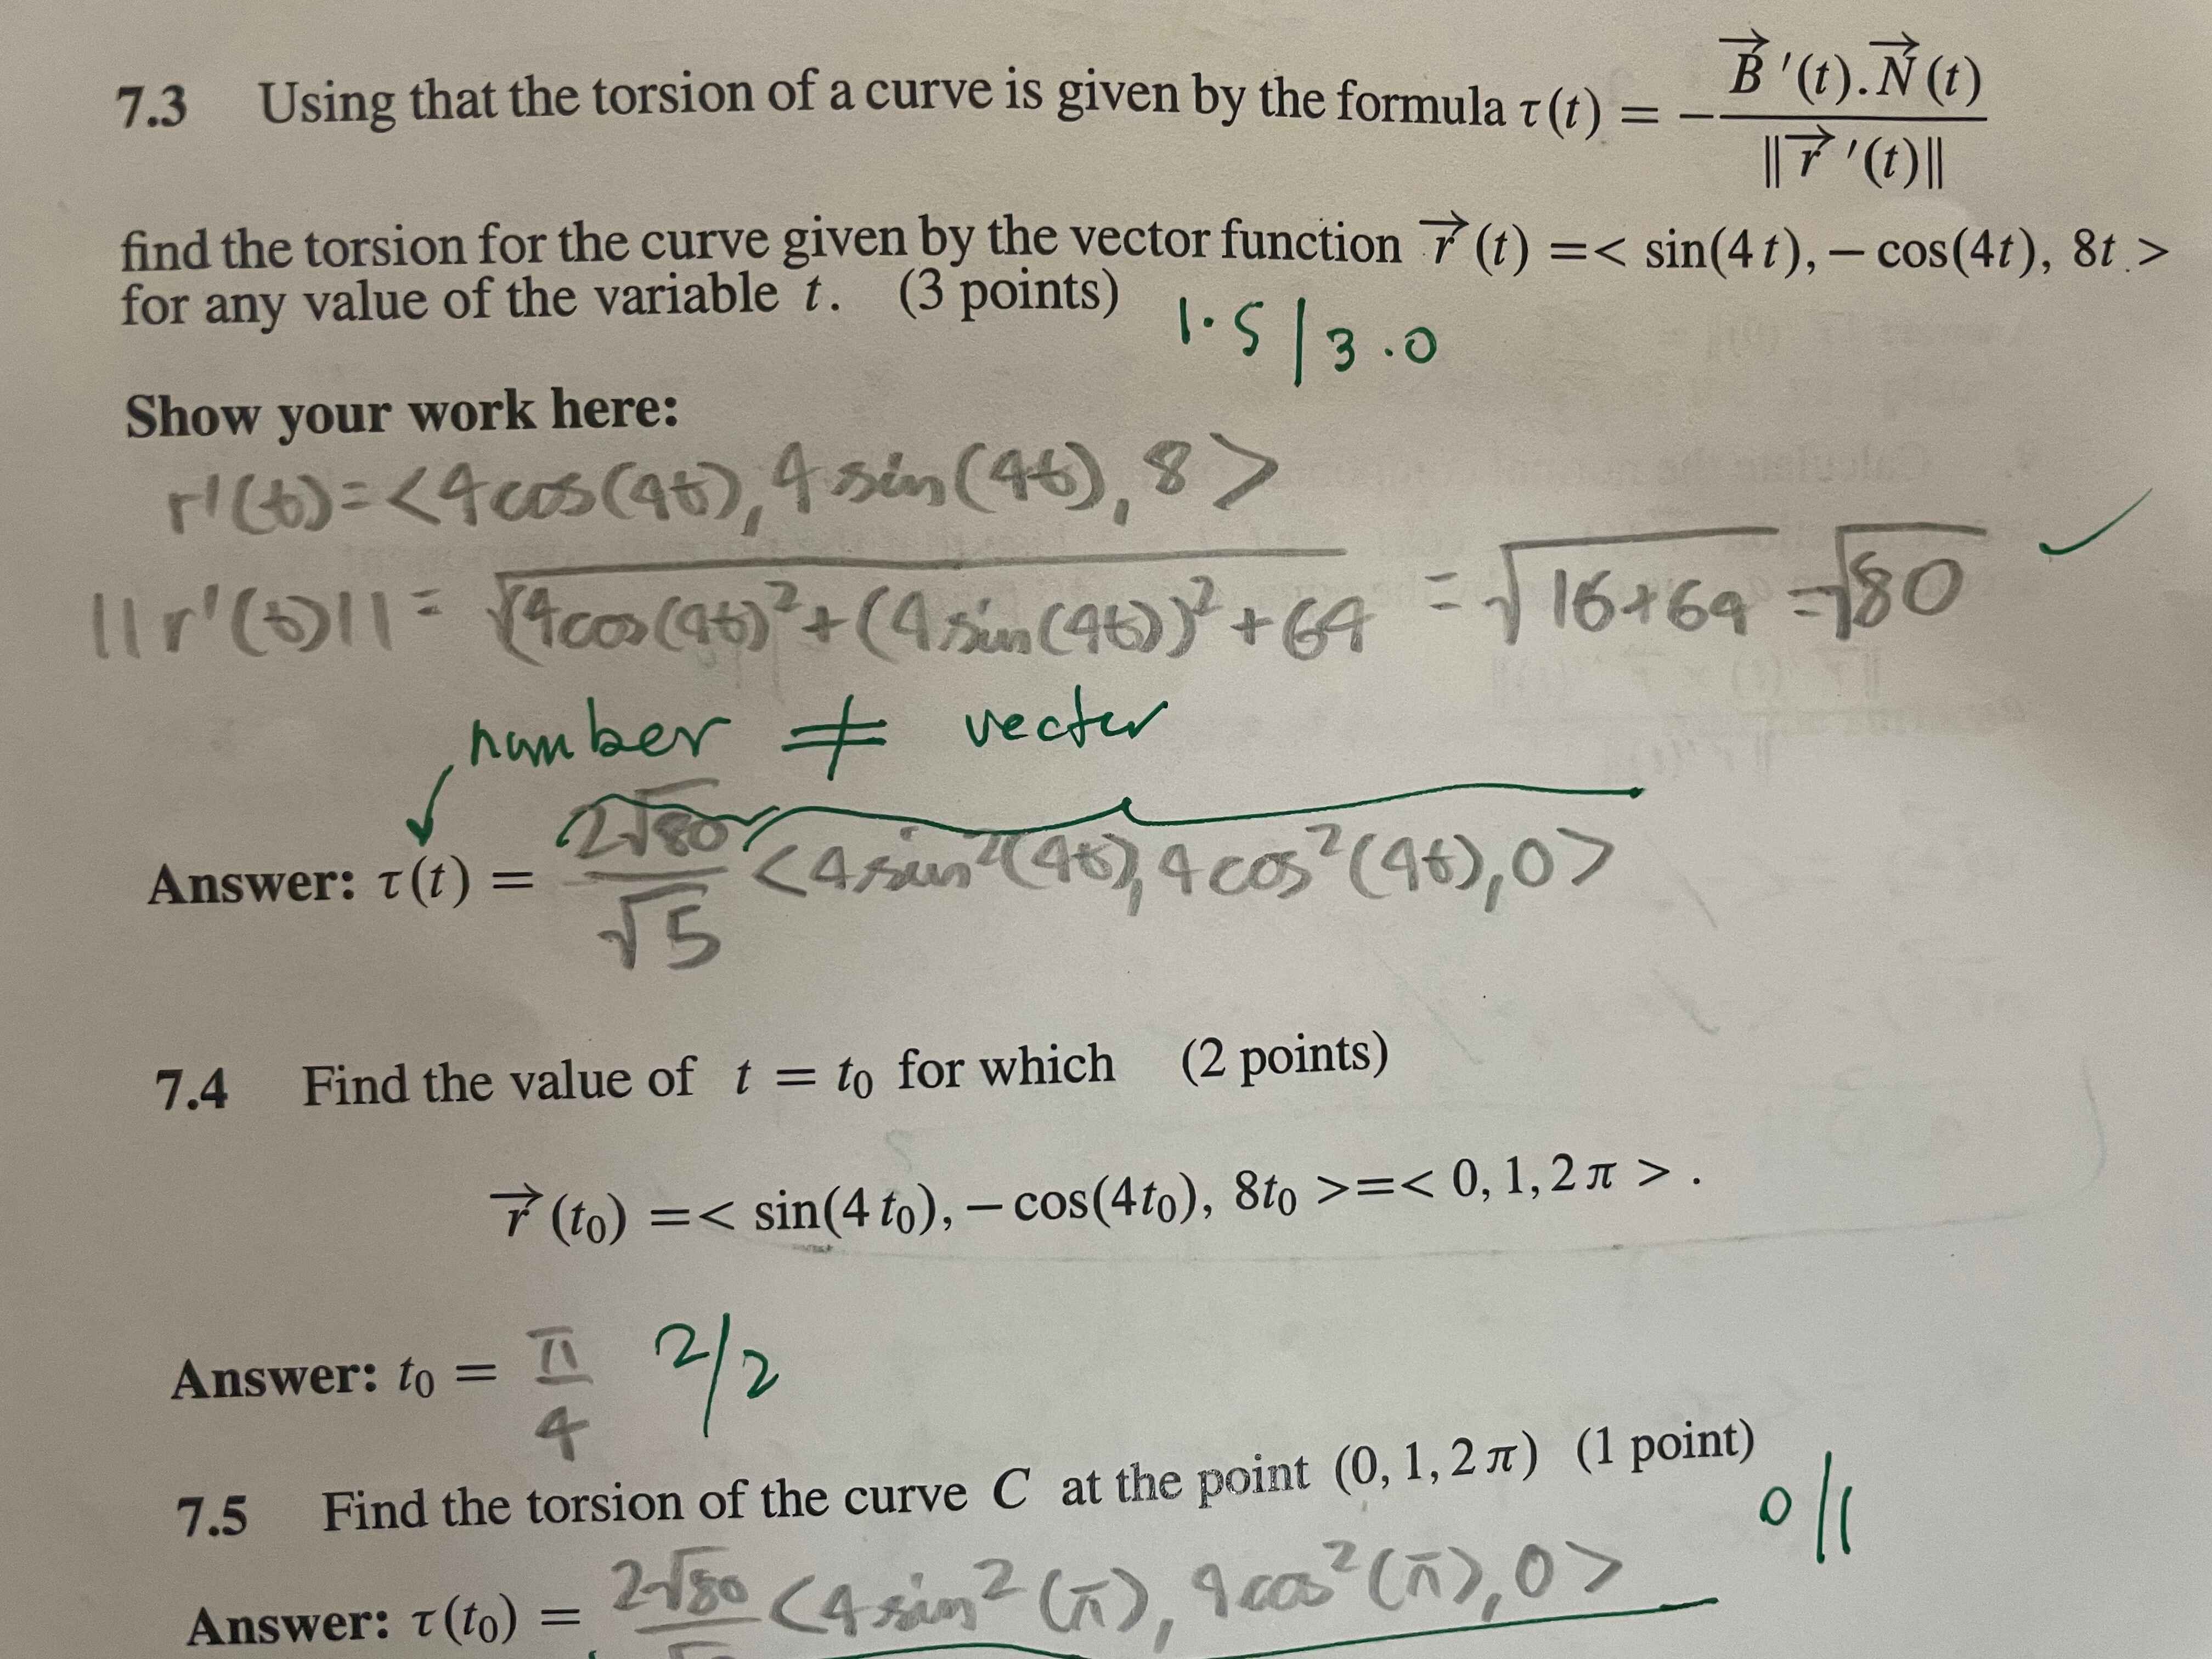 7.3 Using that the torsion of a curve is given by the formula τ(t) = − B⃗ ′(t).N⃗(t) / ||r⃗ ′(t)||
find the torsion for the curve given by the vector function r⃗(t) =< sin(4t), − cos(4t), 8t >
for any value of the variable t. (3 points)
1.5/3.0
Show your work here:
r'(t)=<4cos(4t), 4sin(4t), 8>
||r'(t)|| = √(4cos(4t)²+(4sin(4t))²+64 = √16+64 = √80 ✓
number ≠ vector
Answer: τ(t) = 2√80/√5 <4sin²(4t), 4cos²(4t), 0>
7.4 Find the value of t = t₀ for which (2 points)
r⃗(t₀) =< sin(4t₀), − cos(4t₀), 8t₀ >=< 0, 1, 2π > .
Answer: t₀ = π/4 2/2
7.5 Find the torsion of the curve C at the point (0, 1, 2π) (1 point)
0/1
Answer: τ(t₀) = 2√80 <4sin²(π), 4cos²(π), 0>